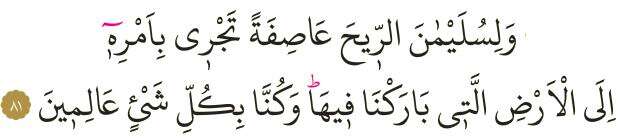 وَلِسُلَيْمٰنَ الرّ۪يحَ عَاصِفَةً تَجْر۪ى بِاَمْرِه۪ٓ
اِلَى الْاَرْضِ الَّت۪ى بَارَكْنَا ف۪يهَاۜ وَكُنَّا بِكُلِّ شَيْءٍ عَالِم۪ينَ ﴿٨١﴾